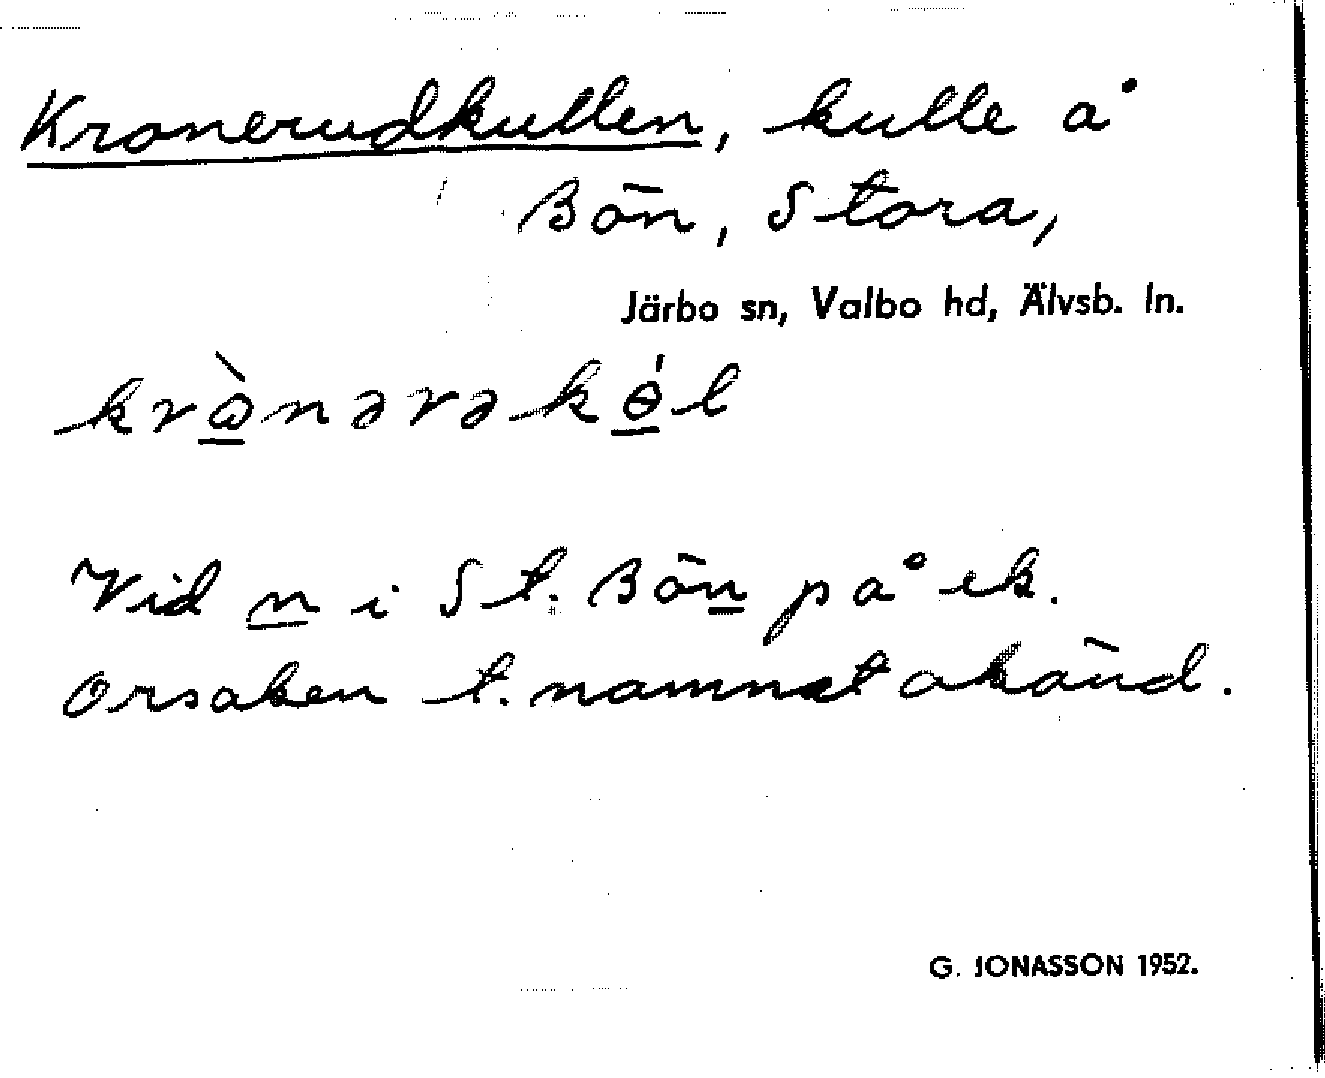 Kronerudkullen, kulle å
Bön, Stora,
Järbo sn, Valbo hd, Älvsb. ln.
krὼ̲nərəkɵ̲́l
Vid n i St. Bön på ek.
Orsaken t. namnet okänd.
G. JONASSON 1952.